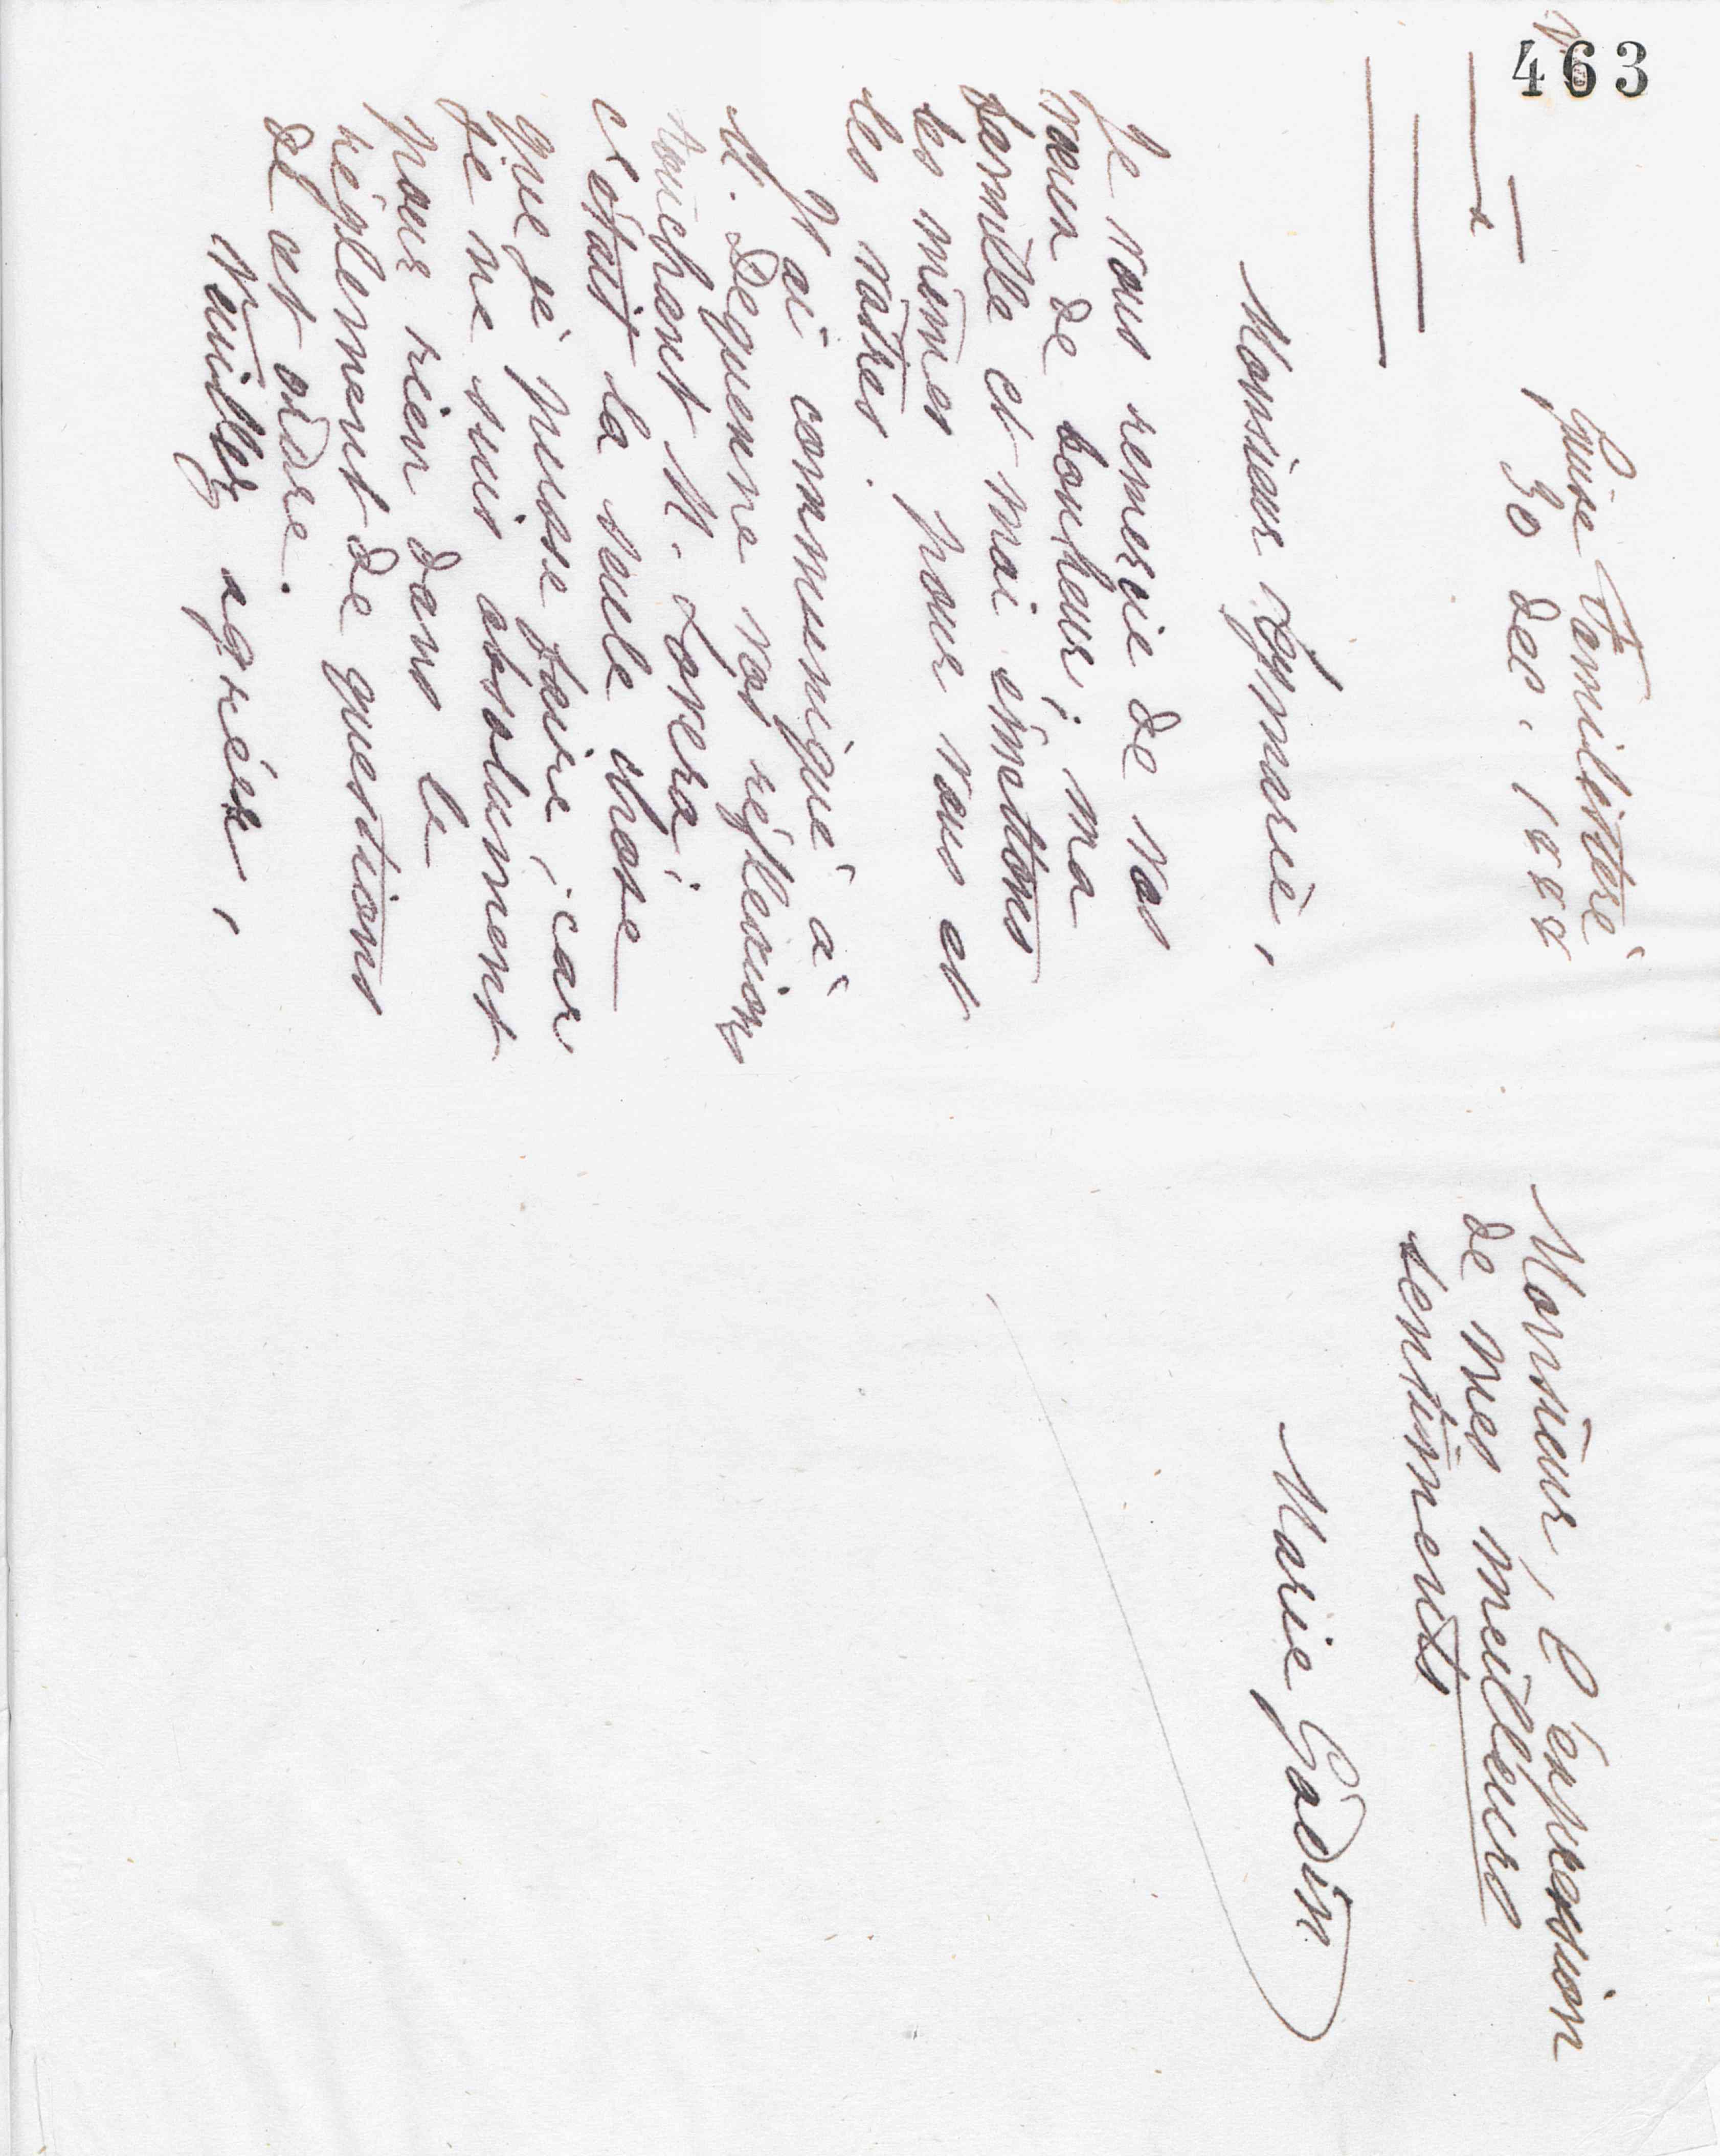 463
Guise Familistère
30 déc. 1888
Monsieur Leymarie,
Je vous remercie de vos
vœux de bonheur; ma
famille et moi émettons
les mêmes pour vous et
les vôtres.
J'ai communiqué à
M. Dequenne vos réflexions
touchant M.
c'était la seule chose
que je pusse faire, car
je ne suis absolument
pour rien dans le
règlement de questions
de cet ordre.
Veuillez agréer,
Monsieur, l'expression
de mes meilleurs
sentiments
Marie Godin